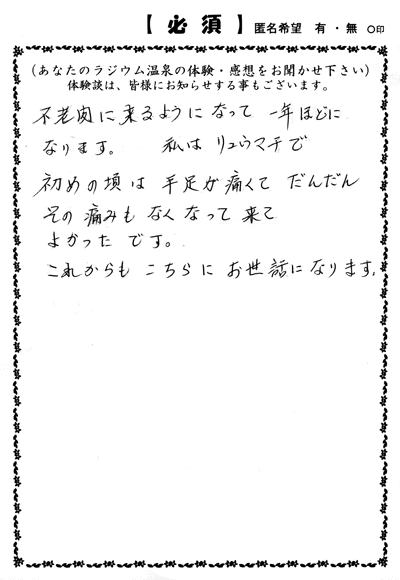 【 必 須 】 匿名希望 有 ・ 無 ○印
(あなたのラジウム温泉の体験・感想をお聞かせ下さい)
体験談は、皆様にお知らせする事もございます。
不老閣に来るようになって 一年ほどに
なります。 私は リュウマチで
初めの頃は 手足が痛くて だんだん
その 痛みも なくなって 来て
よかった です。
これからも こちらに お世話になります。